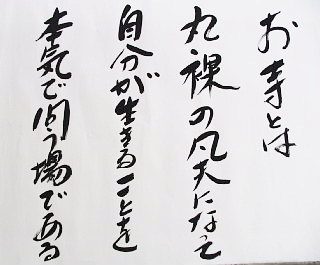 お寺とは
丸裸の凡夫になって
自分が生きることを
本気で問う場である